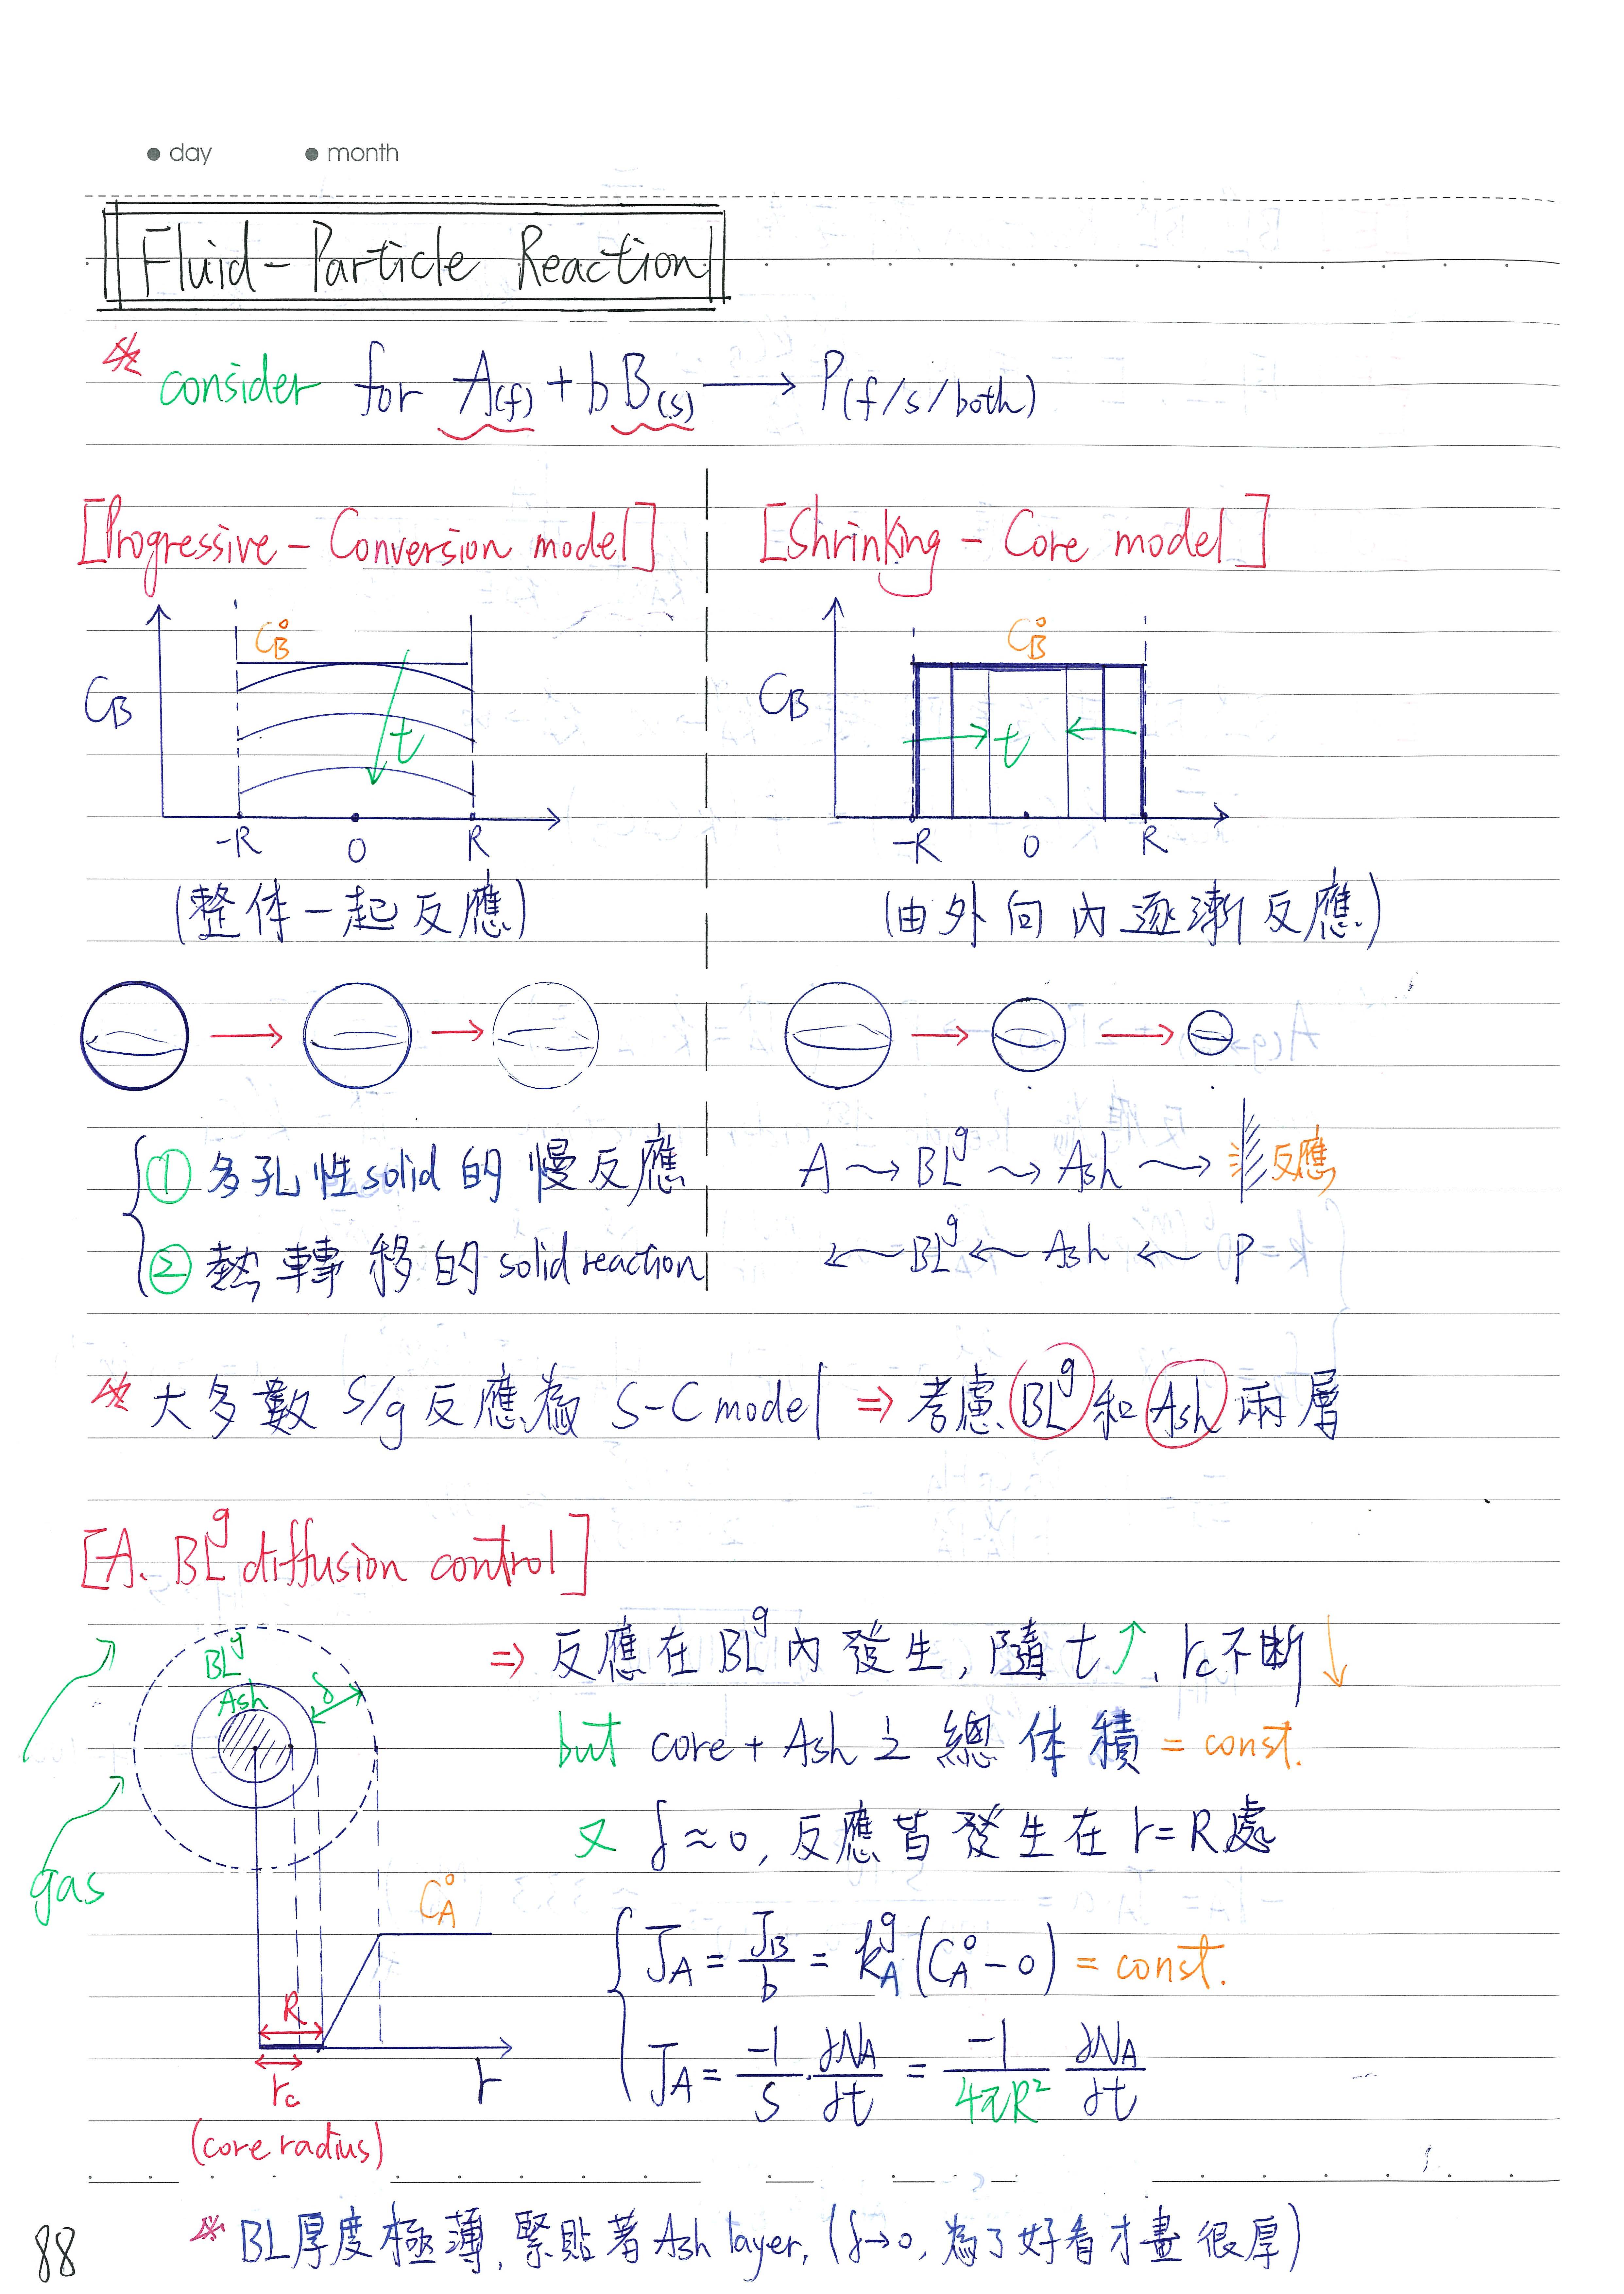 day month
Fluid-Particle Reaction
※ consider for A(f) + bB(s) → P(f/s/both)
[Progressive-Conversion model]
C_B
C_B°
t
-R 0 R
(整体一起反應)
① 多孔性solid的慢反應
② 熱轉移的solid reaction
[Shrinking-Core model]
C_B
C_B°
t
-R 0 R
(由外向內逐漸反應)
A → BL^g → Ash → 反應
← BL^g ← Ash ← P
※ 大多數 S/g 反應為 S-C model ⇒ 考慮 BL^g 和 Ash 兩層
[A. BL^g diffusion control]
BL^g
Ash
δ
gas
C_A°
R
r_c
r
(core radius)
⇒ 反應在BL^g內發生, 隨t↑, r_c不斷↓
but core + Ash 之總体積 = const.
又 δ≈0, 反應皆發生在 r=R處
J_A = J_B/b = k_A^g (C_A° - 0) = const.
J_A = -1/S · dN_A/dt = -1/4πR² dN_A/dt
※ BL厚度極薄, 緊貼著Ash layer, (δ→0, 為了好看才畫很厚)
88